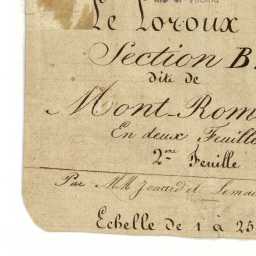 Le Loroux
Section B.
dite de
Mont-Rom
En deux Feuille
2me Feuille
Par MM Jouard et Lemai
Echelle de 1 à 25